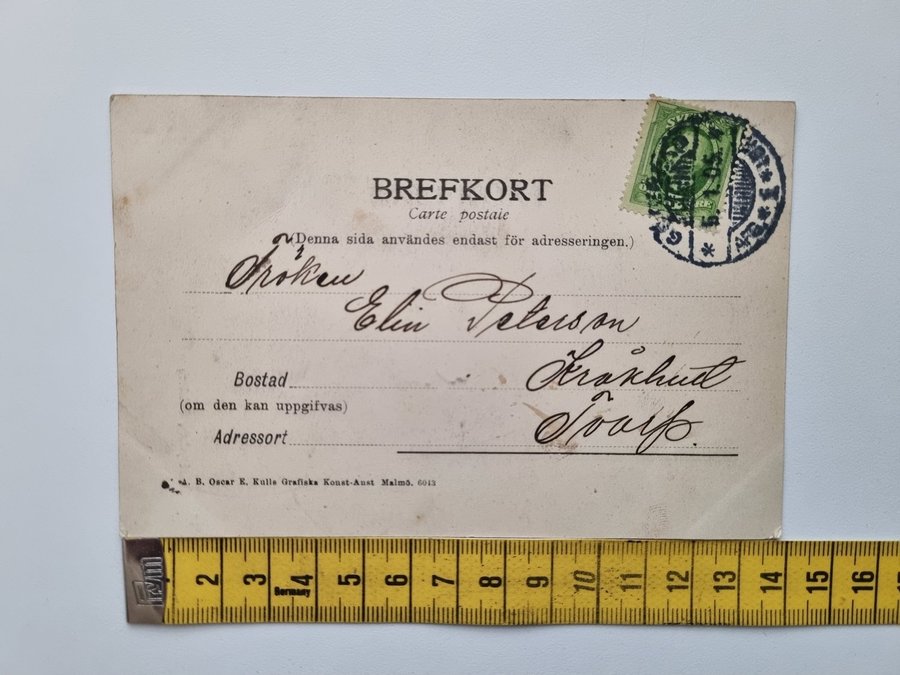 BREFKORT
Carte postaie
(Denna sida användes endast för adresseringen.)
Fröken
Elin Peterson
Bostad Kråkhult
(om den kan uppgifvas)
Adressort Tvarp.
A. B. Oscar E. Kulls Grafiska Konst-Anst Malmö. 6043
2 3 4 5 6 7 8 9 10 11 12 13 14 15 16
Germany